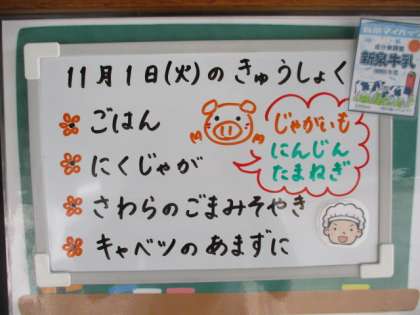 11月1日(火)のきゅうしょく
ごはん
にくじゃが
さわらのごまみそやき
キャベツのあまずに
じゃがいも
にんじん
たまねぎ
成分無調整
新泉牛乳